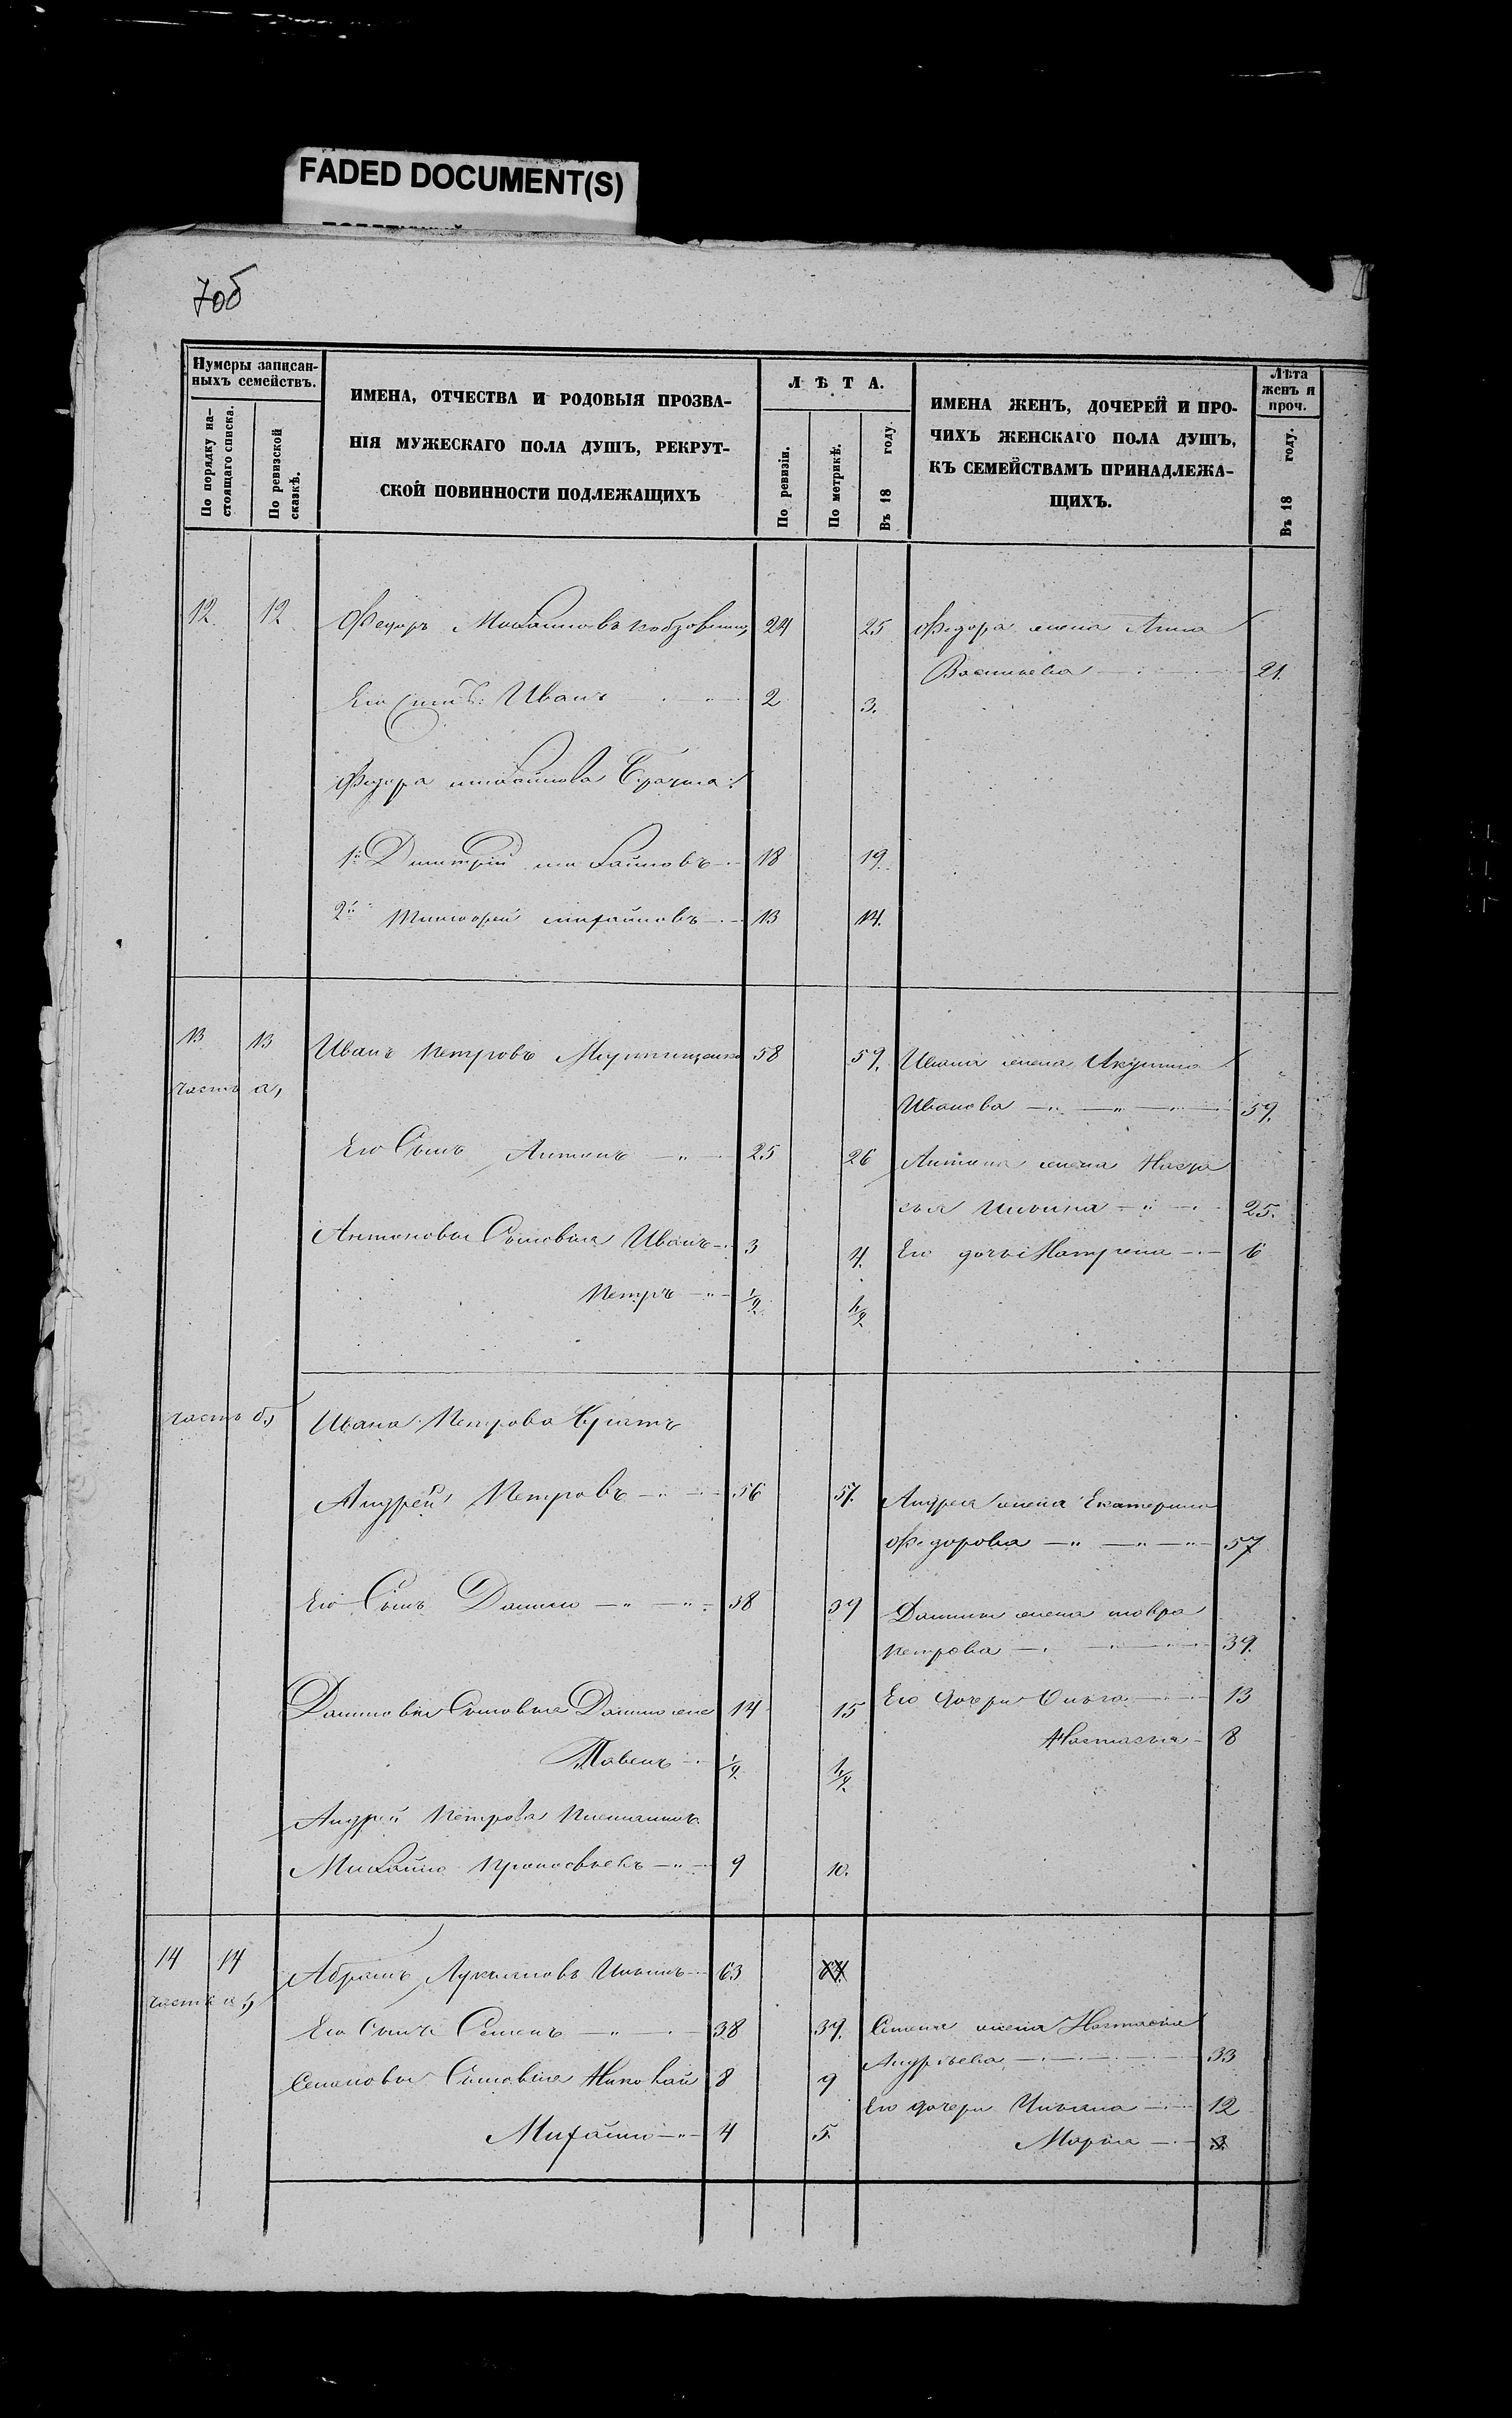 FADED DOCUMENT(S)
70б
Нумеры записан-
ныхъ семействъ.
По порядку на-
стоящаго списка.
По ревизской
сказкѣ.
ИМЕНА, ОТЧЕСТВА И РОДОВЫЯ ПРОЗВА-
НІЯ МУЖЕСКАГО ПОЛА ДУШЪ, РЕКРУТ-
СКОЙ ПОВИННОСТИ ПОДЛЕЖАЩИХЪ
ЛѢТА.
По ревизіи.
По метрикѣ.
Въ 18 году.
ИМЕНА ЖЕНЪ, ДОЧЕРЕЙ И ПРО-
ЧИХЪ ЖЕНСКАГО ПОЛА ДУШЪ,
КЪ СЕМЕЙСТВАМЪ ПРИНАДЛЕЖА-
ЩИХЪ.
Лѣта
женъ и
проч.
Въ 18 году.
12 12 Федоръ Михайловъ 24 25 Федора жена Анна
Васильева 21.
Его Сынъ: Иванъ 2 3.
Федора михайлова Братья:
1й Дмитрій михайловъ 18 19
2й Тимофей михайловъ 13 14.
13 13 Иванъ Петровъ 58 59. Ивана жена Акулина
часть а,
Иванова 59.
Его Сынъ Антонъ 25 26 Антона жена Наста
сья Ильина 25.
Антоновы Сыновья Иванъ 3 4. Его дочь Матрена 6
Петръ 1/2 1 1/2
часть б, Ивана Петрова Братъ
Андрей Петровъ 56 57. Андрея жена Екатерина
Федорова 57
Его Сынъ Данило 38 39 Данилы жена мавра
петрова 39.
Даниловы Сыновья 14 15 Его Дочери Ольга 13
Настасья 8
Павелъ 1/2 1 1/2
Андрей Петрова племянникъ
Михайло 9 10.
14 14 Абрамъ Лукьяновъ Ильинъ 63 64
часть а,
Его Сынъ Семенъ 38 39. Семена жена Настасья
Андрѣева 33
Семеновы Сыновья Николай 8 9
Его дочери Ульяна 12
Михайло 4 5.
Марья 3